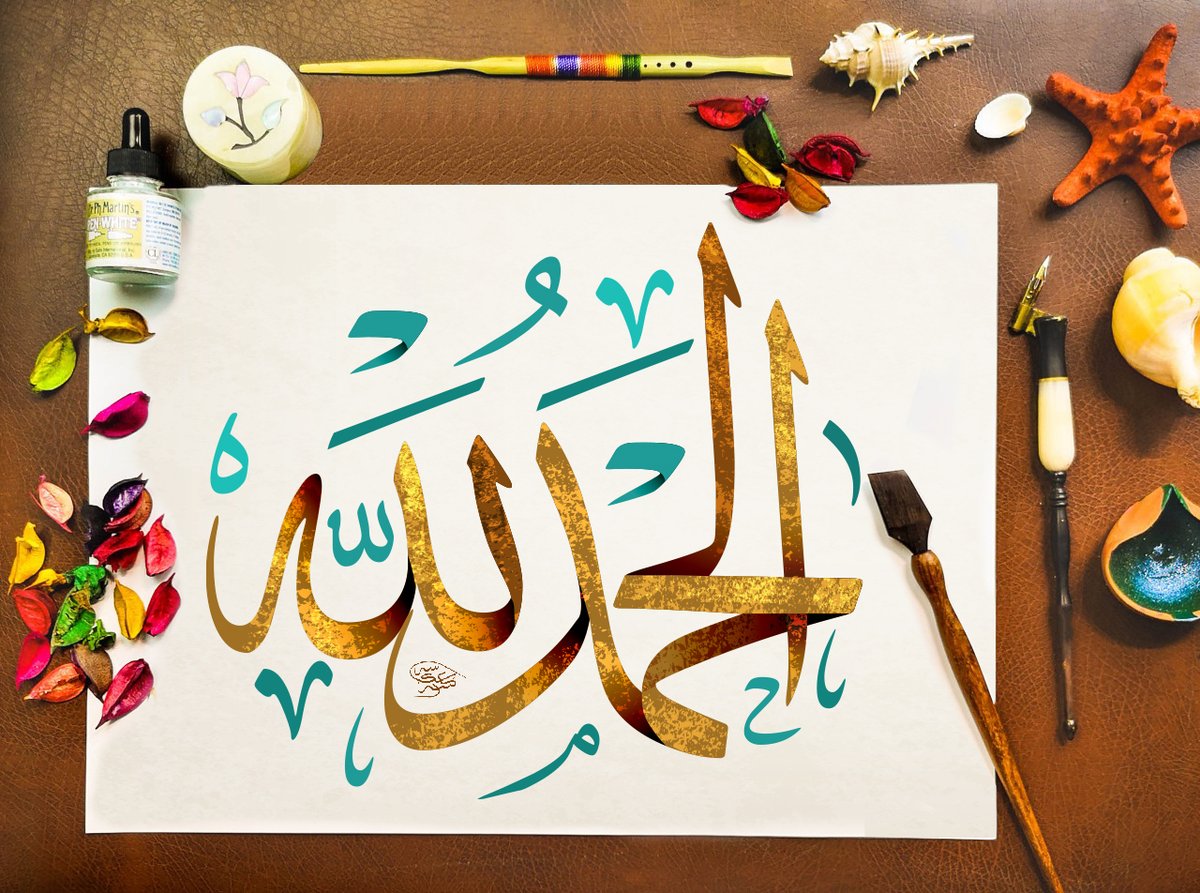 Dr. Ph. Martin's.
PEN-WHITE
الحمد لله